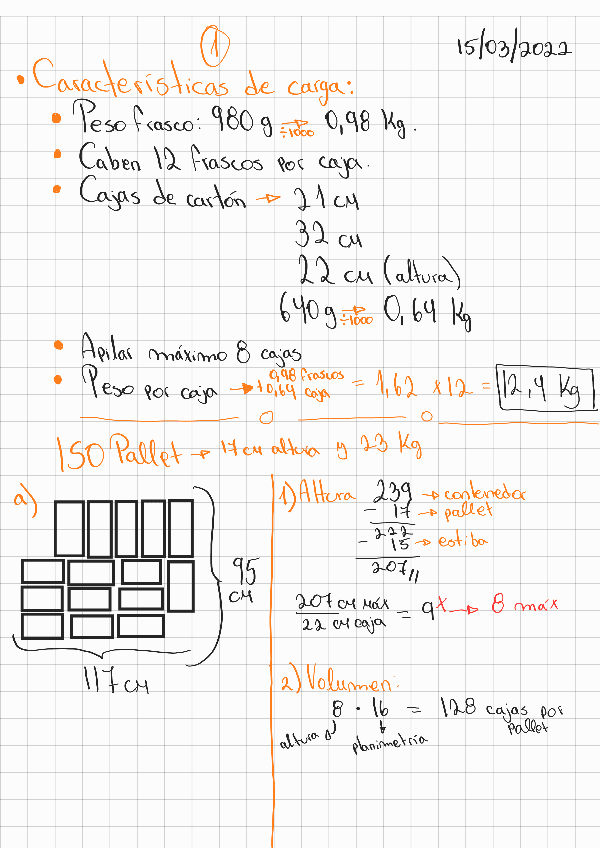 1
15/03/2022
• Características de carga:
• Peso frasco: 980 g ÷1000 → 0,98 Kg.
• Caben 12 frascos por caja.
• Cajas de cartón → 21 cm
32 cm
22 cm (altura)
640 g ÷1000 → 0,64 Kg
• Apilar máximo 8 cajas
• Peso por caja → 0,98 frascos + 0,64 caja = 1,62 x 12 = 12,4 Kg
ISO Pallet → 17 cm altura y 23 Kg
a)
95 cm
117 cm
1) Altura 239 → contenedor
- 17 → pallet
222
- 15 → estiba
207 //
207 cm máx / 22 cm caja = 9 x → 8 máx
2) Volumen:
8 · 16 = 128 cajas por pallet
altura planimetría